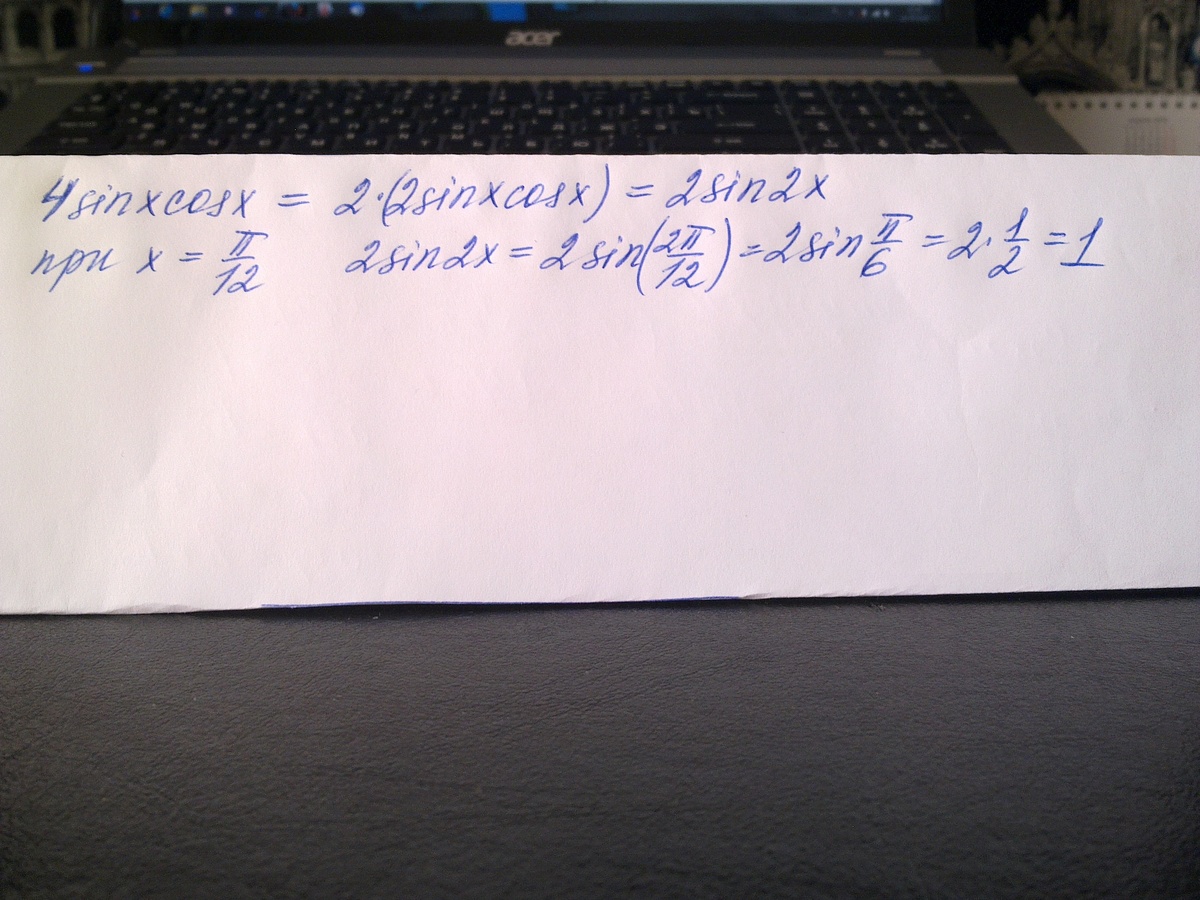 acer
4sinxcosx = 2·(2sinxcosx) = 2sin2x
при x = π/12 2sin2x = 2sin(2π/12) = 2sin π/6 = 2·1/2 = 1